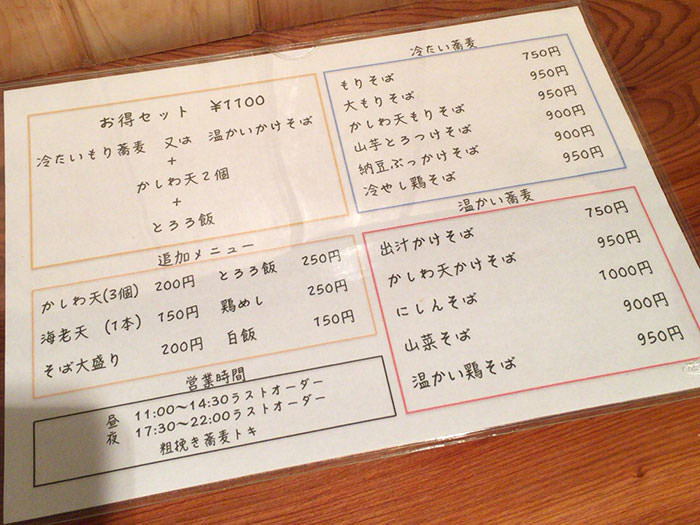 お得セット ¥1100
冷たいもり蕎麦 又は 温かいかけそば
+
かしわ天2個
+
とろろ飯
追加メニュー
かしわ天(3個) 200円 とろろ飯 250円
海老天 (1本) 150円 鶏めし 250円
そば大盛り 200円 白飯 150円
営業時間
昼 11:00〜14:30ラストオーダー
夜 17:30〜22:00ラストオーダー
粗挽き蕎麦トキ
冷たい蕎麦
もりそば 750円
大もりそば 950円
かしわ天もりそば 950円
山芋とろつけそば 900円
納豆ぶっかけそば 900円
冷やし鶏そば 950円
温かい蕎麦
出汁かけそば 750円
かしわ天かけそば 950円
にしんそば 1000円
山菜そば 900円
温かい鶏そば 950円